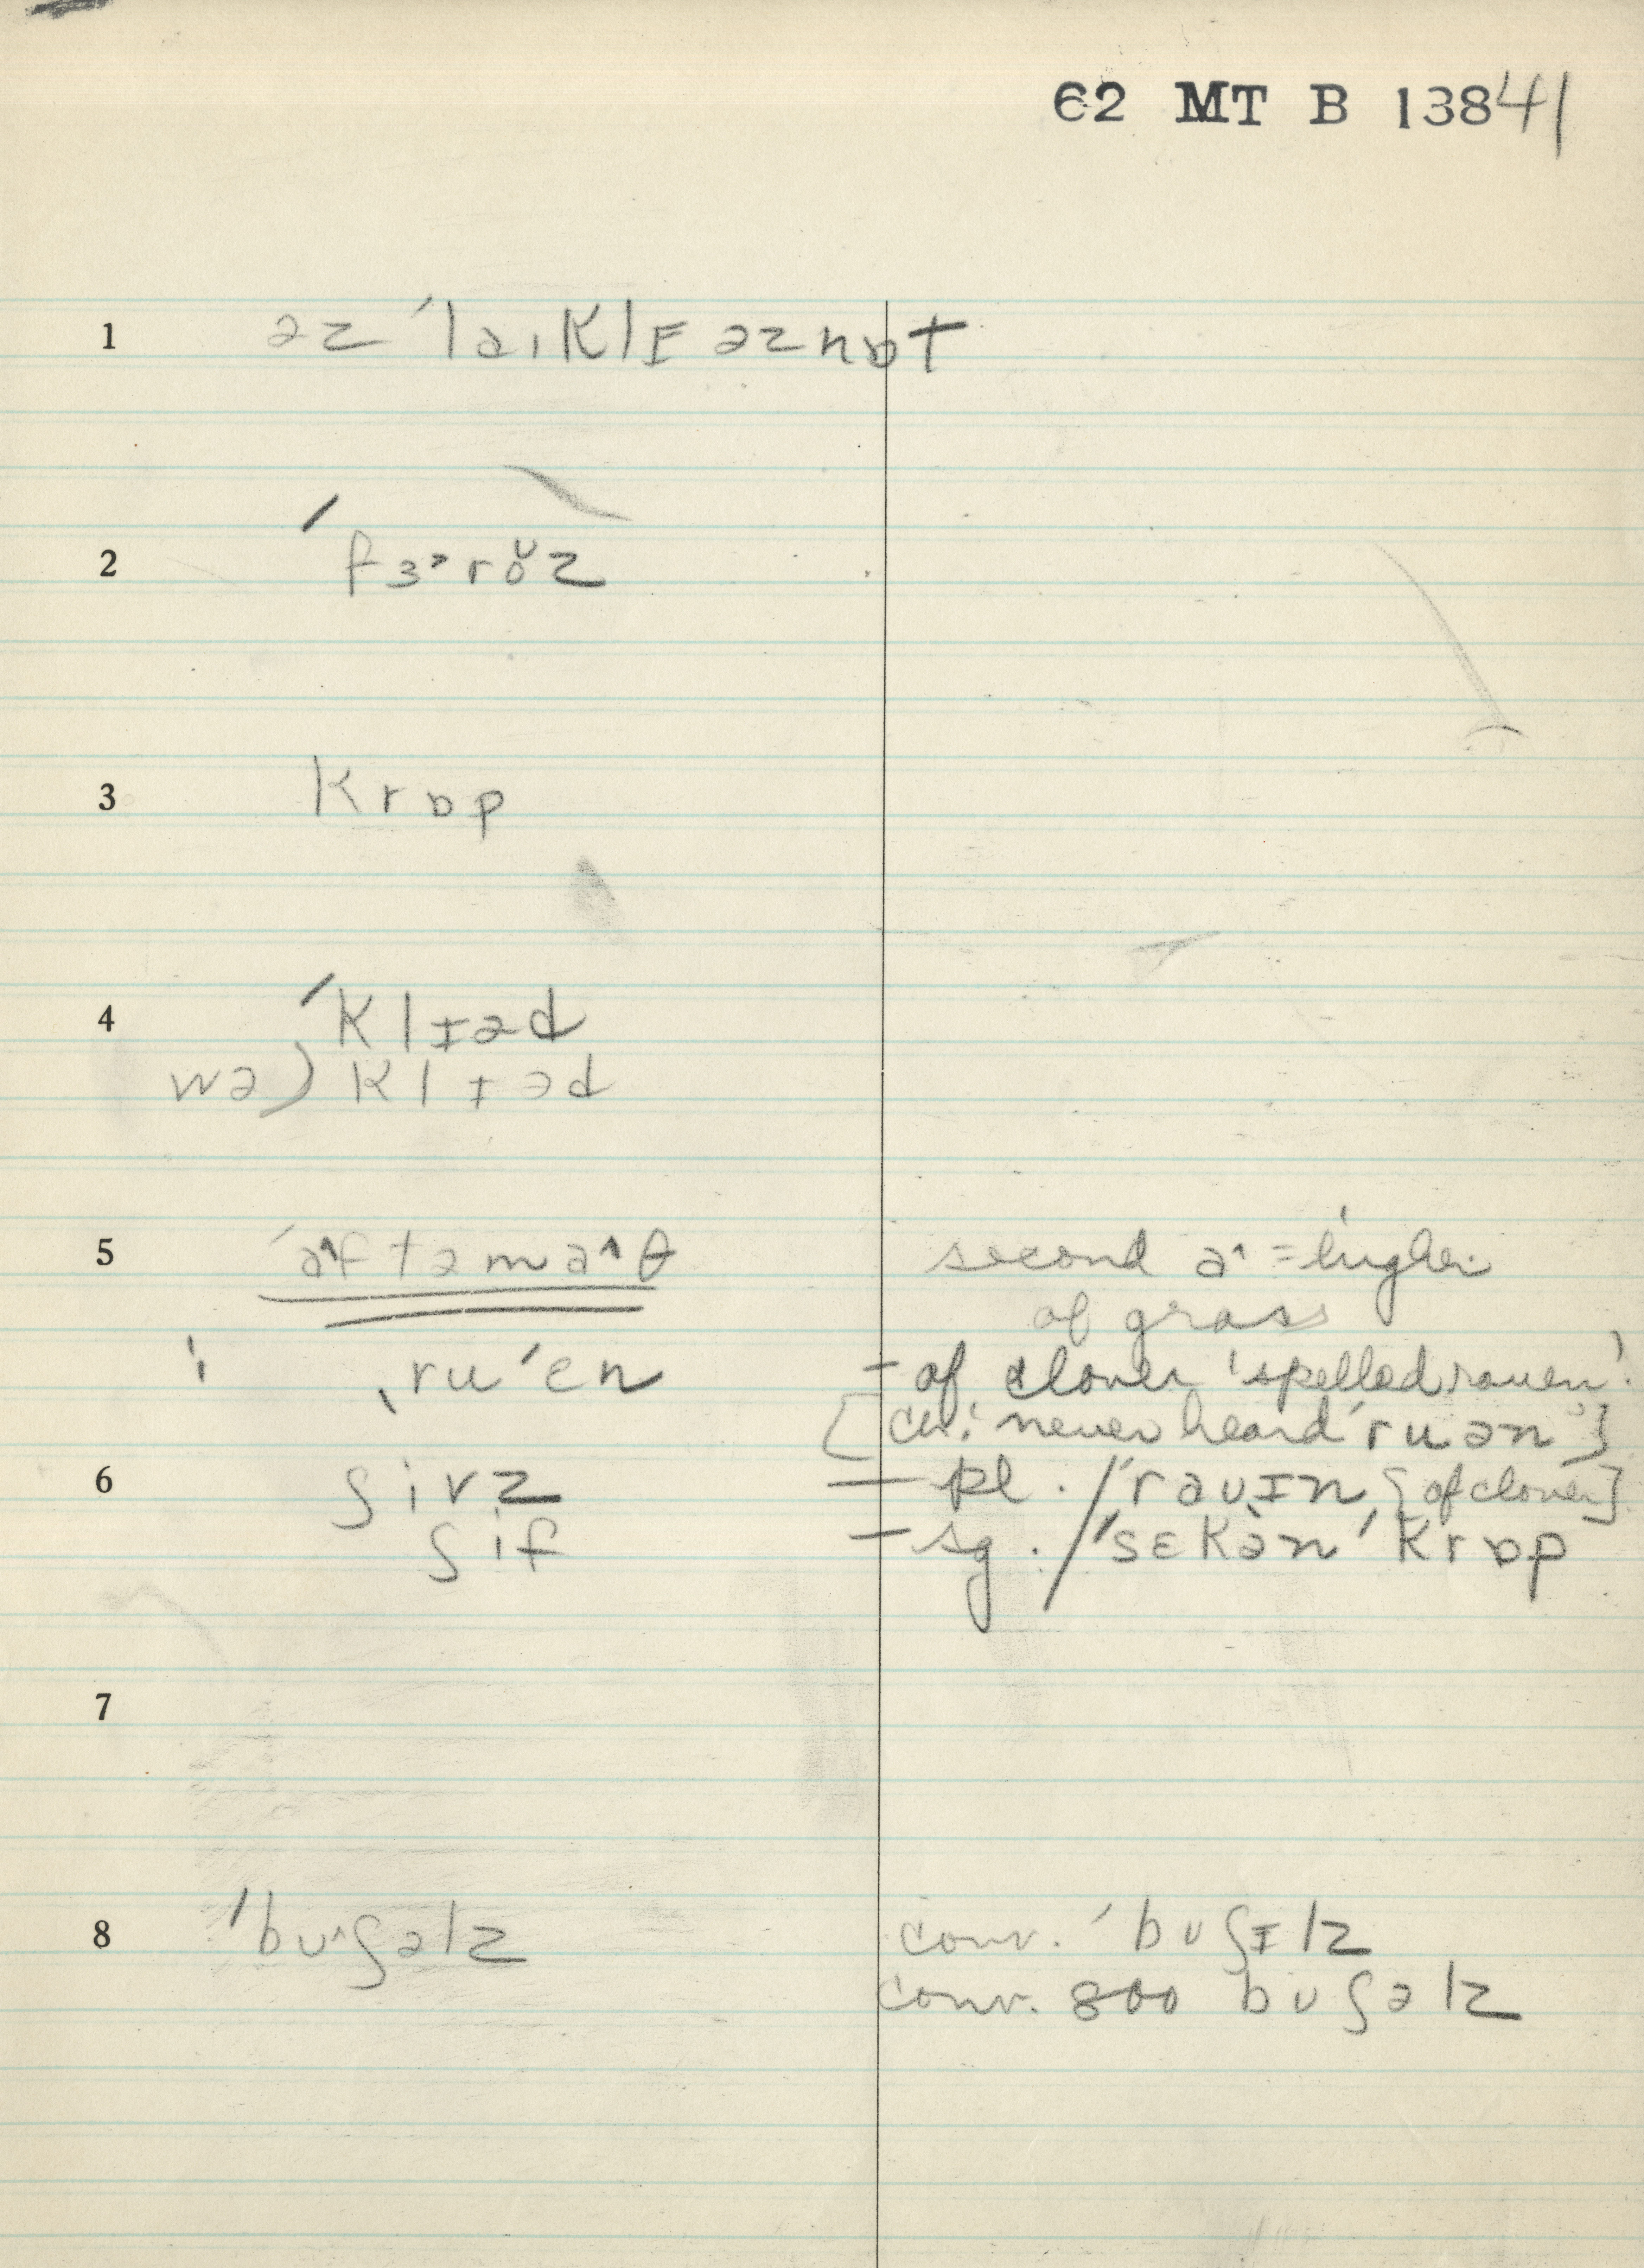 62 MT B 13841
1 əz ˈlaɪklɪ əznɒt
2 ˈfɜ˞roᴗz
3 krɒp
4 ˈklɪəd
wə) klɪəd
5 ˈa^ftəma^θ second a^ = higher
of grass
ˌruˈen - of clover 'spelled rouen'.
[ch: never heard ˈruən]
6 ʃivz — pl. / ˈraʊɪn [of clover]
ʃif — sg. / ˈsɛkən ˈkrɒp
7
8 ˈbʊ^ʃəlz conv. ˈbʊʃɪlz
conv. 800 bʊʃəlz